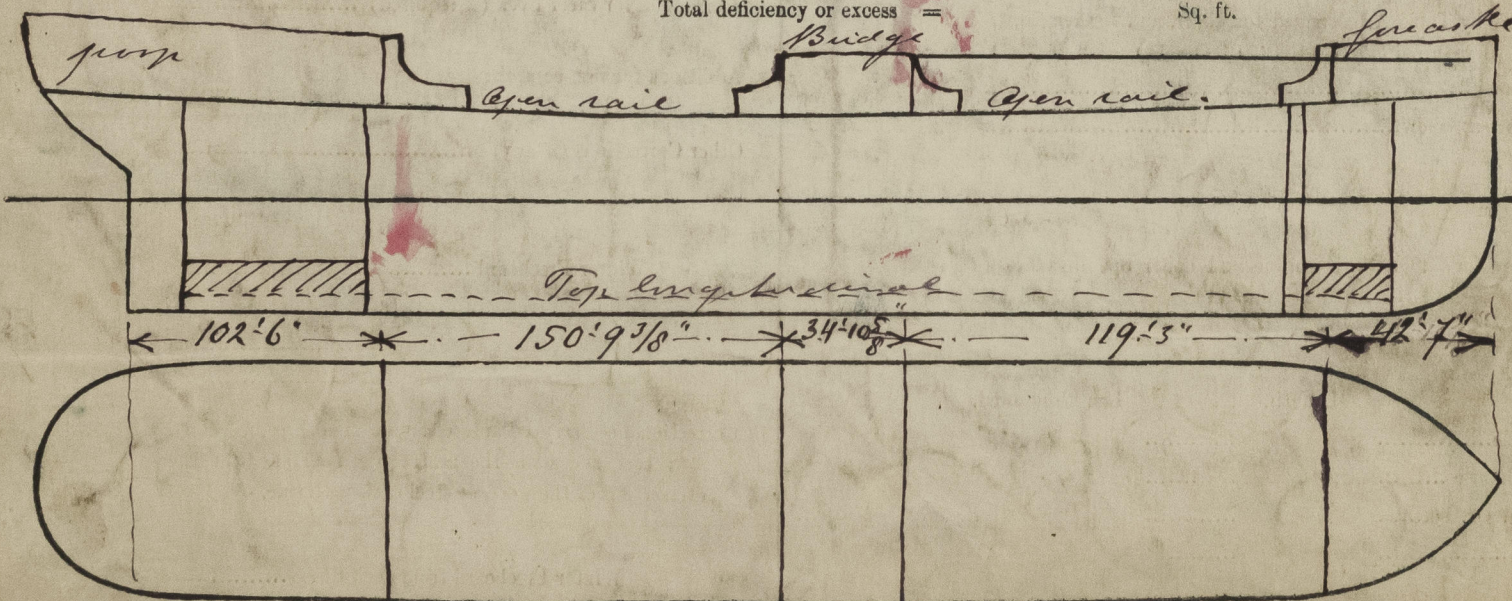 Total deficiency or excess = Sq. ft.
poop Bridge forecastle
Open rail Open rail.
Top longitudinal
102'-6" 150'-9 3/8" 34'-10 5/8" 119'-3" 42'-7"